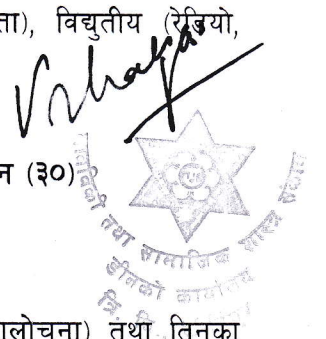 ता), विद्युतीय (रेडियो,
न (३०)
तथा सामाजिक शास्त्र संकाय
डीनको कार्यालय
त्रि.
ालोचना) तथा तिनका